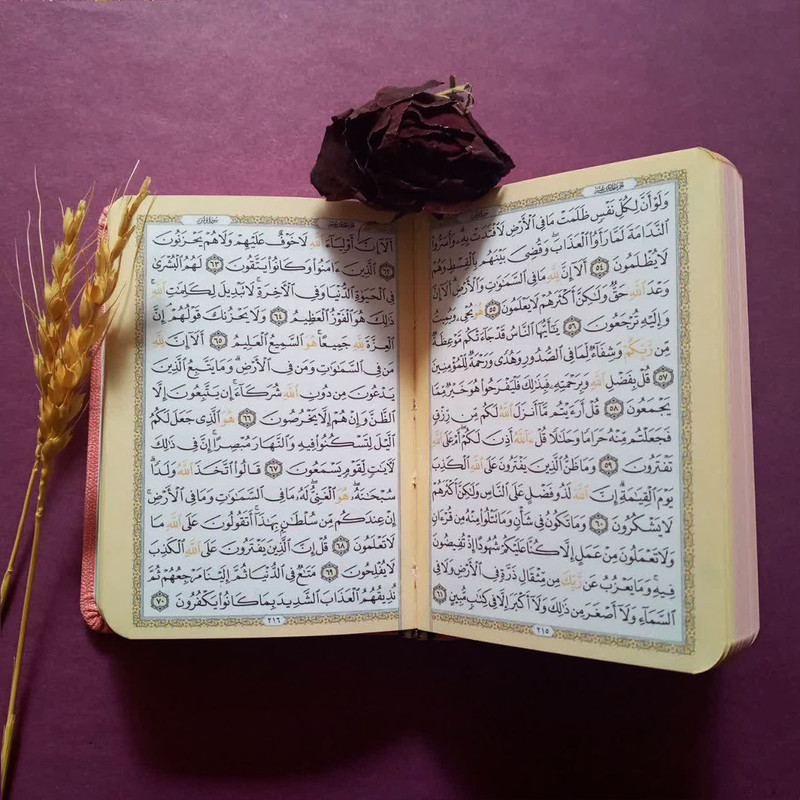 الجزء الحادي عشر
سورة يونس
وَلَوْ أَنَّ لِكُلِّ نَفْسٍ ظَلَمَتْ مَا فِي ٱلْأَرْضِ لَٱفْتَدَتْ بِهِۦ وَأَسَرُّوا۟
ٱلنَّدَامَةَ لَمَّا رَأَوُا۟ ٱلْعَذَابَ وَقُضِىَ بَيْنَهُم بِٱلْقِسْطِ وَهُمْ
لَا يُظْلَمُونَ ٥٤ أَلَآ إِنَّ لِلَّهِ مَا فِي ٱلسَّمَـٰوَٰتِ وَٱلْأَرْضِ أَلَآ إِنَّ
وَعْدَ ٱللَّهِ حَقٌّ وَلَـٰكِنَّ أَكْثَرَهُمْ لَا يَعْلَمُونَ ٥٥ هُوَ يُحْىِۦ وَيُمِيتُ
وَإِلَيْهِ تُرْجَعُونَ ٥٦ يَـٰٓأَيُّهَا ٱلنَّاسُ قَدْ جَآءَتْكُم مَّوْعِظَةٌ
مِّن رَّبِّكُمْ وَشِفَآءٌ لِّمَا فِي ٱلصُّدُورِ وَهُدًى وَرَحْمَةٌ لِّلْمُؤْمِنِينَ
٥٧ قُلْ بِفَضْلِ ٱللَّهِ وَبِرَحْمَتِهِۦ فَبِذَٰلِكَ فَلْيَفْرَحُوا۟ هُوَ خَيْرٌ مِّمَّا
يَجْمَعُونَ ٥٨ قُلْ أَرَءَيْتُم مَّآ أَنزَلَ ٱللَّهُ لَكُم مِّن رِّزْقٍ
فَجَعَلْتُم مِّنْهُ حَرَامًا وَحَلَـٰلًا قُلْ ءَآللَّهُ أَذِنَ لَكُمْ أَمْ عَلَى ٱللَّهِ
تَفْتَرُونَ ٥٩ وَمَا ظَنُّ ٱلَّذِينَ يَفْتَرُونَ عَلَى ٱللَّهِ ٱلْكَذِبَ
يَوْمَ ٱلْقِيَـٰمَةِ إِنَّ ٱللَّهَ لَذُو فَضْلٍ عَلَى ٱلنَّاسِ وَلَـٰكِنَّ أَكْثَرَهُمْ
لَا يَشْكُرُونَ ٦٠ وَمَا تَكُونُ فِي شَأْنٍ وَمَا تَتْلُوا۟ مِنْهُ مِن قُرْءَانٍ
وَلَا تَعْمَلُونَ مِنْ عَمَلٍ إِلَّا كُنَّا عَلَيْكُمْ شُهُودًا إِذْ تُفِيضُونَ
فِيهِ وَمَا يَعْزُبُ عَن رَّبِّكَ مِن مِّثْقَالِ ذَرَّةٍ فِي ٱلْأَرْضِ وَلَا فِي
ٱلسَّمَآءِ وَلَآ أَصْغَرَ مِن ذَٰلِكَ وَلَآ أَكْبَرَ إِلَّا فِي كِتَـٰبٍ مُّبِينٍ ٦١
٢١٥
الجزء الحادي عشر
سورة يونس
أَلَآ إِنَّ أَوْلِيَآءَ ٱللَّهِ لَا خَوْفٌ عَلَيْهِمْ وَلَا هُمْ يَحْزَنُونَ
٦٢ ٱلَّذِينَ ءَامَنُوا۟ وَكَانُوا۟ يَتَّقُونَ ٦٣ لَهُمُ ٱلْبُشْرَىٰ
فِي ٱلْحَيَوٰةِ ٱلدُّنْيَا وَفِي ٱلْـَٔاخِرَةِ لَا تَبْدِيلَ لِكَلِمَـٰتِ ٱللَّهِ
ذَٰلِكَ هُوَ ٱلْفَوْزُ ٱلْعَظِيمُ ٦٤ وَلَا يَحْزُنكَ قَوْلُهُمْ إِنَّ
ٱلْعِزَّةَ لِلَّهِ جَمِيعًا هُوَ ٱلسَّمِيعُ ٱلْعَلِيمُ ٦٥ أَلَآ إِنَّ لِلَّهِ
مَن فِي ٱلسَّمَـٰوَٰتِ وَمَن فِي ٱلْأَرْضِ وَمَا يَتَّبِعُ ٱلَّذِينَ
يَدْعُونَ مِن دُونِ ٱللَّهِ شُرَكَآءَ إِن يَتَّبِعُونَ إِلَّا
ٱلظَّنَّ وَإِنْ هُمْ إِلَّا يَخْرُصُونَ ٦٦ هُوَ ٱلَّذِي جَعَلَ لَكُمُ
ٱلَّيْلَ لِتَسْكُنُوا۟ فِيهِ وَٱلنَّهَارَ مُبْصِرًا إِنَّ فِي ذَٰلِكَ
لَـَٔايَـٰتٍ لِّقَوْمٍ يَسْمَعُونَ ٦٧ قَالُوا۟ ٱتَّخَذَ ٱللَّهُ وَلَدًا
سُبْحَـٰنَهُۥ هُوَ ٱلْغَنِىُّ لَهُۥ مَا فِي ٱلسَّمَـٰوَٰتِ وَمَا فِي ٱلْأَرْضِ
إِنْ عِندَكُم مِّن سُلْطَـٰنٍۭ بِهَـٰذَآ أَتَقُولُونَ عَلَى ٱللَّهِ مَا
لَا تَعْلَمُونَ ٦٨ قُلْ إِنَّ ٱلَّذِينَ يَفْتَرُونَ عَلَى ٱللَّهِ ٱلْكَذِبَ
لَا يُفْلِحُونَ ٦٩ مَتَـٰعٌ فِي ٱلدُّنْيَا ثُمَّ إِلَيْنَا مَرْجِعُهُمْ ثُمَّ
نُذِيقُهُمُ ٱلْعَذَابَ ٱلشَّدِيدَ بِمَا كَانُوا۟ يَكْفُرُونَ ٧٠
٢١٦